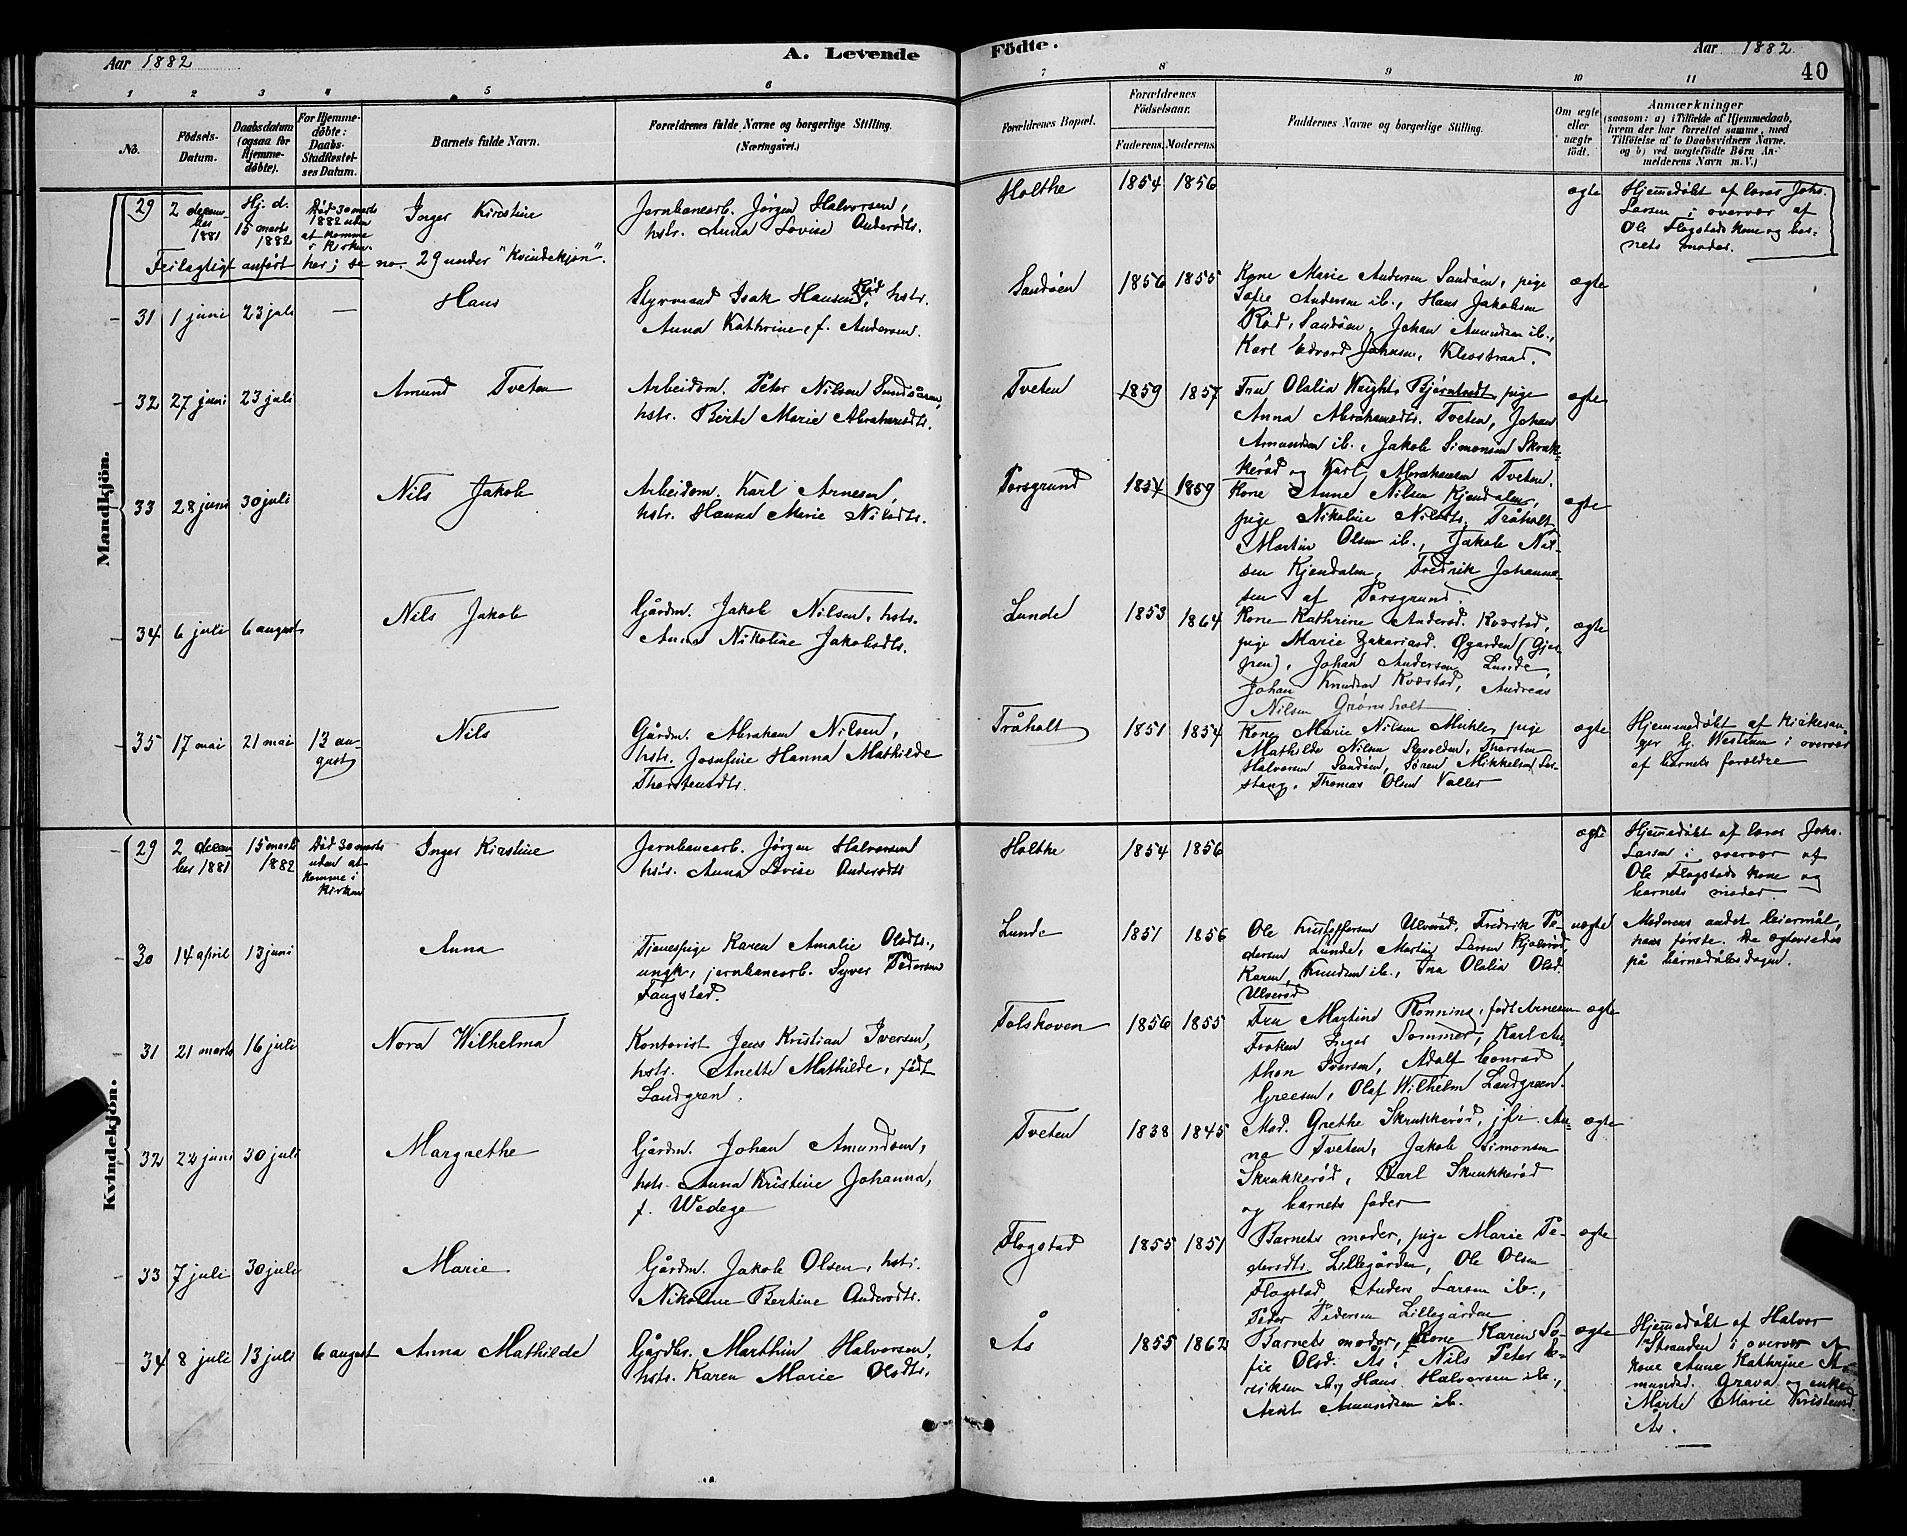 Aar 1882
A. Levende
Födte.
Aar 1882
40
1 2 3 4 5 6 7 8 9 10 11
No.
Födsels-
Datum.
Daabsdatum
(ogsaa for
Hjemme-
döbte).
For Hjemme-
döbte:
Daabs-
Stadfæstel-
ses Datum.
Barnets fulde Navn.
Forældrenes fulde Navne og borgerlige Stilling.
(Næringsvei.)
Forældrenes Bopæl.
Forældrenes
Födselsaar.
Faderens. Moderens.
Faddernes Navne og borgerlige Stilling.
Om ægte
eller
uægte
födt.
Anmærkninger
(saasom: a) i Tilfælde af Hjemmedaab,
hvem der har forrettet samme, med
Tilföielse af to Daabsvidners Navne,
og b) ved uægtefödte Börn An-
melderens Navn m. V.)
Mandkjön.
29
2 decem-
ber
1881
Hj. d.
15 marts
1882
Död 30 marts
1882 uden
at komme
i kirken
Inger Kirstine
Jernbanearb. Jørgen Halvorsen,
hstr. Anna Lovise Andersdtr.
Holthe
1854 1856
ægte
Hjemmedøbt af lærer Johs.
Larsen i overvær af
Ole Flogstads kone og bar-
nets moder.
Feilagtigt anført her; se no. 29 under "Kvindekjøn".
31
1 juni
23 juli
—
Hans
Styrmand Isak Hansen Rød, hstr.
Anna Kathrine, f. Andersen.
Sandøen
1856 1855
Kone Marie Andersen Sandøen, pige
Sofie Andersen ib., Hans Jakobsen
Rød, Sandøen, Johan Amundsen ib.,
Karl Edvard Johnsen, Klevstrand.
ægte
32
27 juni
23 juli
Amund Tveten
Arbeidsm. Peter Nilsen Sundsåsen,
hstr. Berte Marie Abrahamsdtr.
Tveten
1859 1857
Fru Olalia Wright Bjørntvedt, pige
Anna Abrahamsdtr. Tveten, Johan
Amundsen ib., Jakob Simonsen Skruk-
kerød og Karl Abrahamsen Tveten.
ægte
33
28 juni
30 juli
Nils Jakob
Arbeidsm. Karl Arnesen,
hstr. Hanna Marie Nilsdtr.
Porsgrund
1854 1859
Kone Anne Nilsen Kjendalen,
pige Nikoline Nilsdtr. Tråholt,
Martin Olsen ib., Jakob Nil-
sen Kjendalen, Fredrik Johanne-
sen af Porsgrund.
ægte
34
6 juli
6 august
Nils Jakob
Gårdm. Jakob Nilsen, hstr.
Anna Nikoline Jakobsdtr.
Lunde
1853 1864
Kone Kathrine Andersd. Kvæstad,
pige Marie Zakariasd. Øgarden (Gjer-
pen), Johan Andersen Lunde,
Johan Knudsen Kvæstad, Andreas
Nilsen Grønsholt
ægte
35
17 mai
21 mai
13 au-
gust
Nils
Gårdm. Abraham Nilsen,
hstr. Josefine Hanna Mathilde
Thorstensdtr.
Tråholt
1851 1854
Kone Marie Nilsen Muhle, pige
Mathilde Nilsen, Thorsten
Halvorsen Sandøen, Søren Mikkelsen
Thomas Olsen Valler
ægte
Hjemmedøbt af kirkesan-
ger G. Westrum i overvær
af barnets forældre
Kvindekjön.
29
2 decem-
ber 1881
15 marts
1882
Död 30 marts
uden at
komme i
kirken
Inger Kirstine
Jernbanearb. Jørgen Halvorsen
hstr. Anna Lovise Andersdtr
Holthe
1854 1856
ægte
Hjemmedøbt af lærer Johs.
Larsen i overvær af
Ole Flogstads kone og
barnets moder
30
14 april
13 juni
Anna
Tjenestpige Karen Amalie Olsdtr.,
ungk., jernbanearb. Syver Pedersen
Fangstad.
Lunde
1851 1856
Ole Kristoffersen Ulverød, Fredrik Pe-
dersen Lunde, Martin Larsen Kjølerød,
Karen Knudsen ib., Ina Olalia Olsd.
Ulverød
uægte
Moderens andet leiermål,
hans første. De ægteviedes
på barnedåbsdagen.
31
21 marts
16 juli
Nora Wilhelma
Kontorist Jens Kristian Iversen,
hstr. Anette Mathilde, født
Landgren.
Tolskoven
1856 1855
Fru Martine Rønning, født Arnesen
Frøken Inger Sommer, Karl An-
thon Iversen, Adolf Conrad
Greesen, Olaf Wilhelm Landgreen.
ægte
32
24 juni
30 juli
Margrethe
Gårdm. Johan Amundsen,
hstr. Anna Kristine Johanna,
f. Wedege
Tveten
1838 1845
Mad. Grethe Skrukkerød, jfr. An-
na Tveten, Jakob Simonsen
Skrukkerød, Karl Skrukkerød
og barnets fader
ægte
33
7 juli
30 juli
Marie
Gårdm. Jakob Olsen, hstr.
Nikoline Bertine Andersdtr.
Flogstad
1855 1851
Barnets moder, pige Marie Pe-
dersdtr. Lillegården, Ole Olsen
Flogstad, Anders Larsen ib.,
Peder Pedersen Lillegården
ægte
34
8 juli
13 juli
6 august
Anna Mathilde
Gårdbr. Marthin Halvorsen,
hstr. Karen Marie Olsdtr.
Ås
1855 1862
Barnets moder, kone Karen So-
fie Olsd. Ås, Nils Peter E-
riksen ib., Hans Halvorsen ib.,
Arnt Amundsen ib.
ægte
Hjemmedøbt af Halvor
Stranden i overvær af
kone Anne Kathrine A-
mundsd. Grava og enke
Marte Marie Kristensd.
Ås.